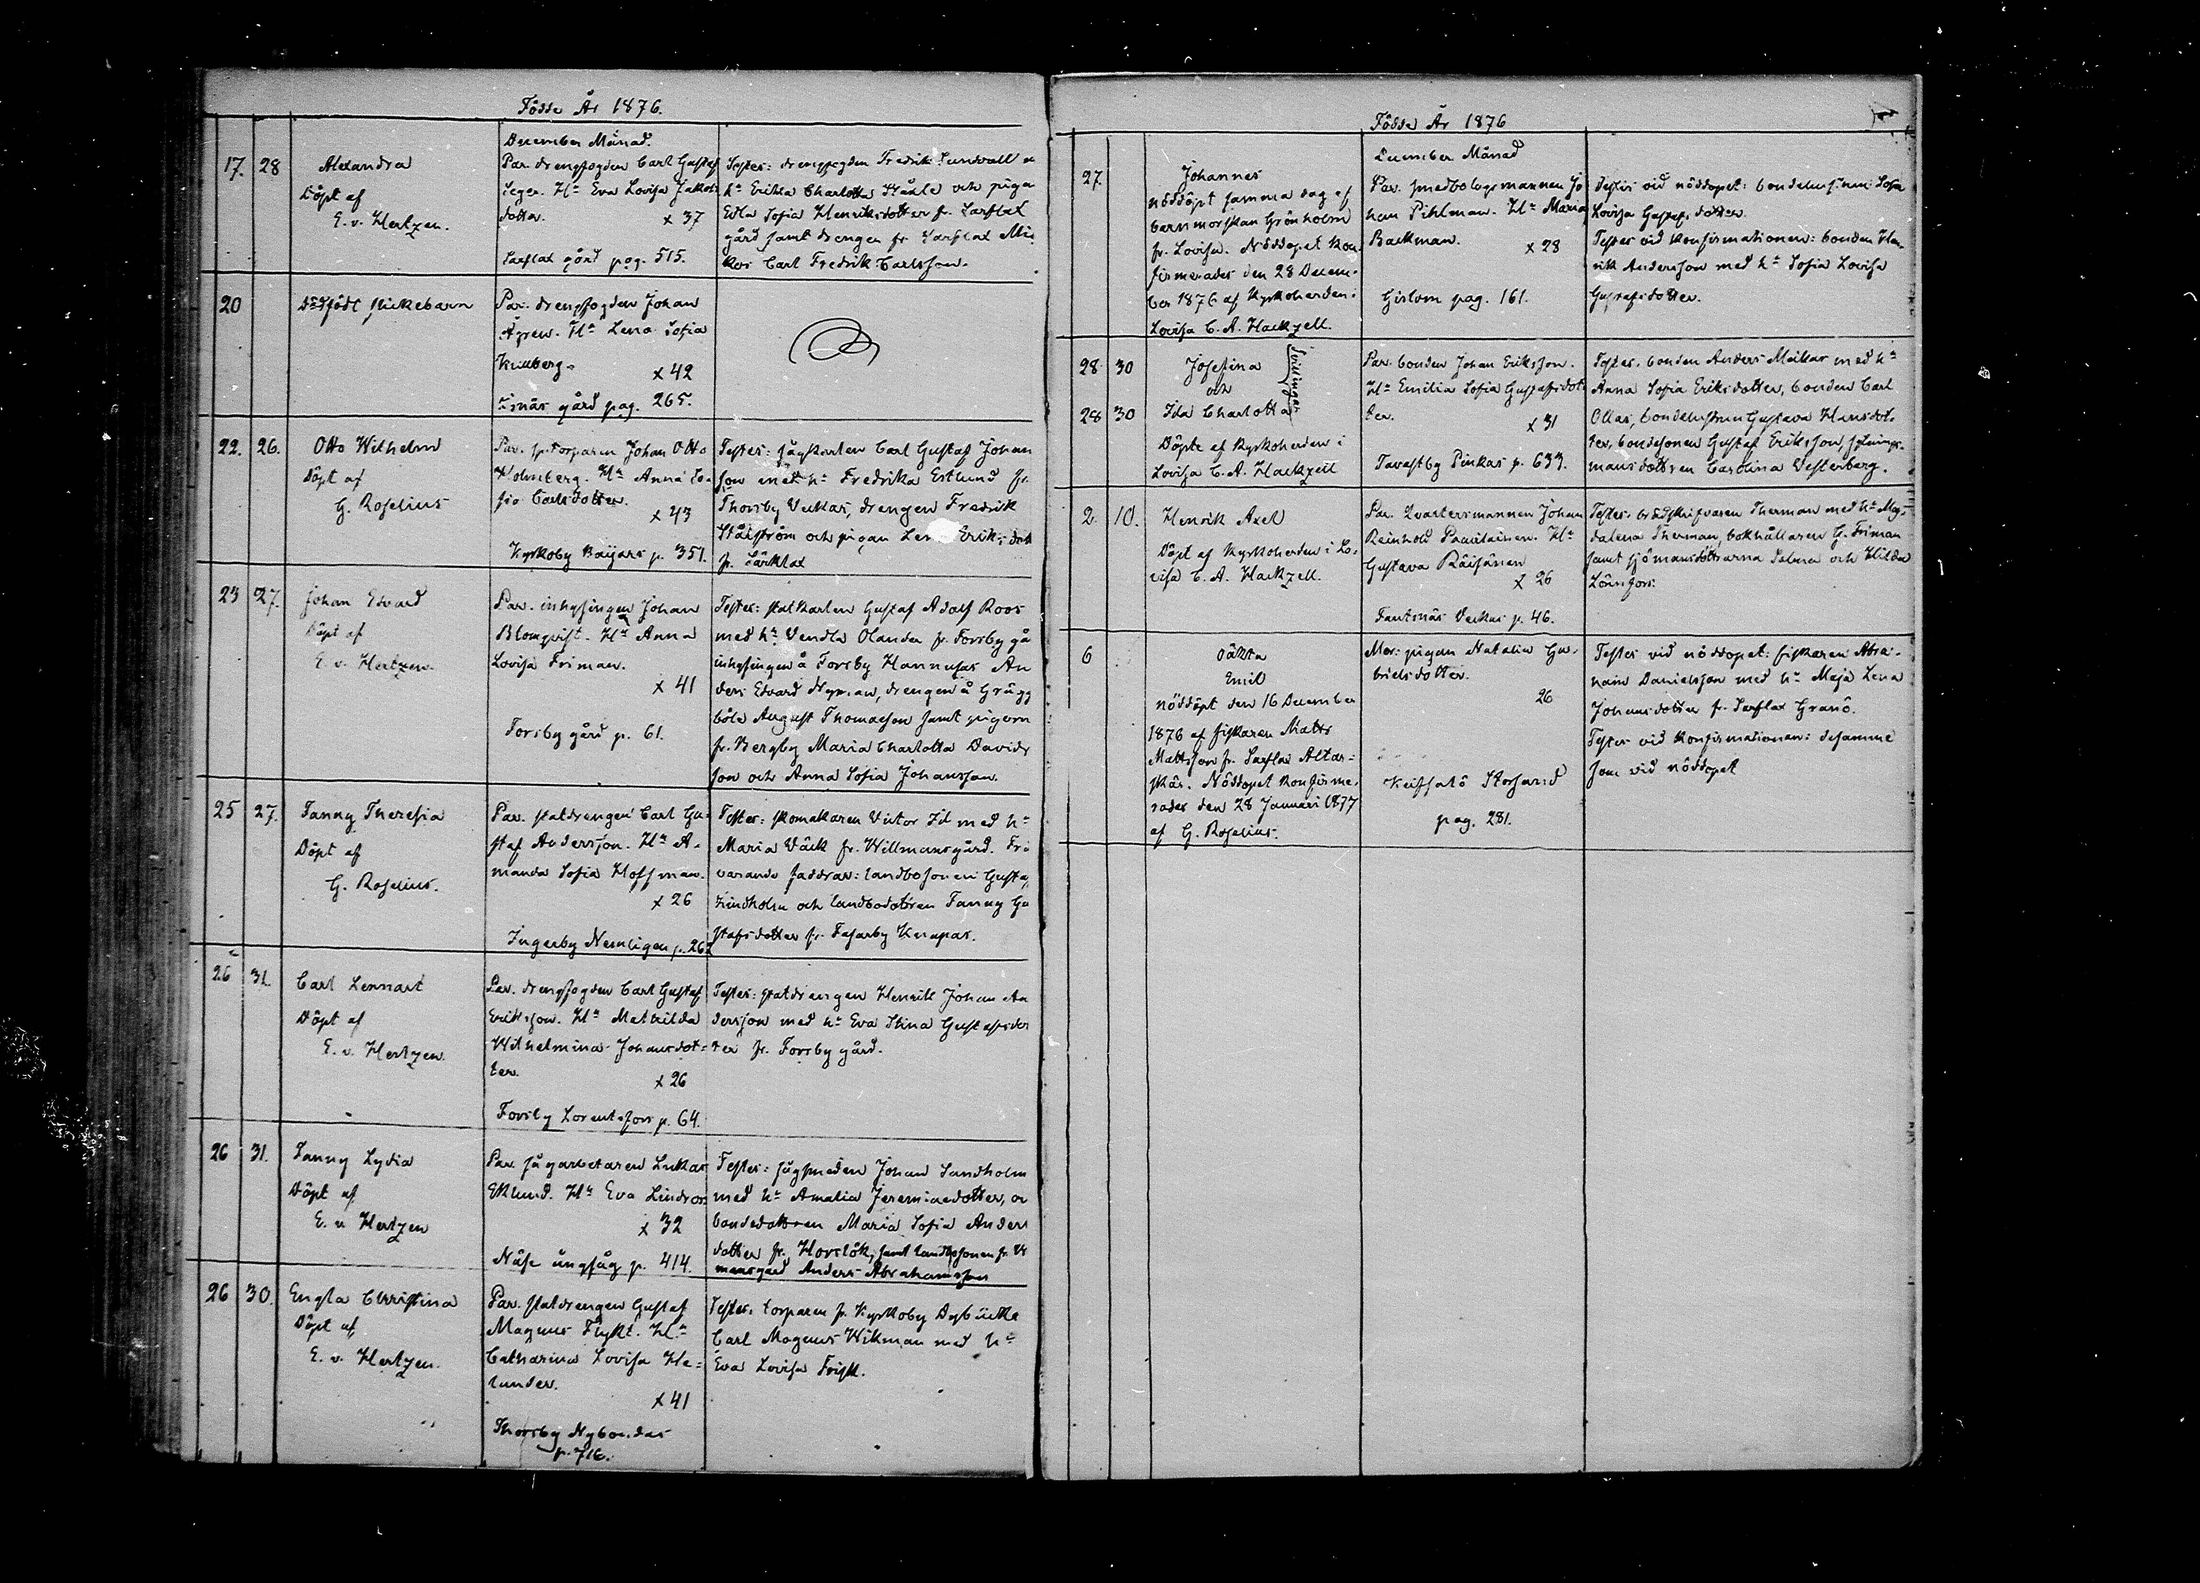 Födde År 1876.
December Månad.
17. 28 Alexandra
Döpt af
E. v. Hertzen.
Par. drengfogden Carl Gustaf
Seger. Hu Eva Lovisa Jakobs
dotter. x 37
Sarflax gård pag. 515.
Testes: drengfogden Fredrik Sundvall m
hu Erika Charlotta Ståhle och piga
Edla Sofia Henriksdotter fr. Sarflax
gård samt drengen fr. Sarflax Mi-
kos Carl Fredrik Carlsson.
20 Dödfödt flickebarn
Par. drengfogden Johan
Ågren. Hu Lena Sofia
Kullberg. x 42
Tisnäs gård pag. 265.
22. 26. Otto Wilhelm
Döpt af
G. Roselius
Par. sp.torparen Johan Otto
Holmberg. Hu Anna So-
fia Carlsdotter. x 43
Kyrkoby Baijars p. 351.
Testes: sågkarlen Carl Gustaf Johan
son med hu Fredrika Estlund fr.
Thorsby Veckas, drengen Fredrik
Stålström och pigan Lena Eriksdott
fr. Särklax
23 27. Johan Edvard
Döpt af
E. v. Hertzen.
Par. inhysingen Johan
Blomqvist. Hu Anna
Lovisa Friman.
x 41
Forsby gård p. 61.
Testes: statkarlen Gustaf Adolf Roos
med hu Vendla Olander fr. Forsby gå
inhysingen å Forsby Hannusas An
ders Edvard Nyman, drengen å Grägg
böle August Thomasson samt pigorn
fr. Bergby Maria Charlotta Davids
son och Anna Sofia Johansson.
25 27. Fanny Theresia
Döpt af
G. Roselius.
Par. statdrengen Carl Gu-
staf Andersson. Hu A-
manda Sofia Hoffman.
x 26
Ingerby Nemligen p. 262
Testes: skomakaren Victor Id med hu
Maria Väck fr. Willmansgård. Frå
varande faddrar: landbosonen Gustaf
Lindholm och landbodottren Fanny Gu
stafsdotter fr. Fasarby Knapas.
26 31. Carl Lennart
Döpt af
E. v. Hertzen
Par. drengfogden Carl Gustaf
Eriksson. Hu Mathilda
Wilhelmina Johansdot-
ter. x 26
Forsby Lorentsfors p. 64.
Testes: statdrengen Henrik Johan An
dersson med hu Eva Stina Gustafsdot
ter fr. Forsby gård.
26 31. Fanny Lydia
Döpt af
E. v. Hertzen
Par. sågarbetaren Lukas
Eklund. Hu Eva Lindros
x 32
Näse ångsåg p. 414.
Testes: sågsmeden Johan Sandholm
med hu Amalia Jeremiaedotter, oc
bondedottren Maria Sofia Anders
dotter fr. Horslök, samt landbosonen fr. W
mansgård Anders Abrahamsson
26 30. Engla Christina
Döpt af
E. v. Hertzen.
Par. statdrengen Gustaf
Magnus Flykt. Hu
Catharina Lovisa He-
lander.
x 41
Thorsby Nybondas
p. 716.
Testes: torparen fr. Kyrkoby Dysbäcka
Carl Magnus Wikman med hu
Eva Lovisa Frisk.
Födde År 1876
December Månad
27. Johannes
nöddöpt samma dag af
barnmorskan Grönholm
fr. Lovisa. Nöddopet kon-
firmerades den 28 Decem-
ber 1876 af Kyrkoherden i
Lovisa C. A. Hackzell.
Par. smedbolagsmannen Jo
han Pihlman. Hu Maria
Backman. x 28
Gislom pag. 161.
Testes vid nöddopet: bondehustrun Sofia
Lovisa Gustafsdotter.
Testes vid konfirmationen: bonden Hen-
rik Andersson med hu Sofia Lovisa
Gustafsdotter.
28 30 Josefina
och
28 30 Ida Charlotta
tvillingar
Döpte af Kyrkoherden i
Lovisa C. A. Hackzell
Par. bonden Johan Eriksson.
Hu Emilia Sofia Gustafsdot-
ter. x 31
Tavastby Pinkas p. 633.
Testes: bonden Anders Mickas med hu
Anna Sofia Eriksdotter, bonden Carl
Ollas, bondehustrun Gustava Hansdot-
ter, bondesonen Gustaf Eriksson,
mansdottren Carolina Vesterberg.
2. 10. Henrik Axel
Döpt af Kyrkoherden i Lo-
visa C. A. Hackzell.
Par. Qvartersmannen Johan
Reinhold Pavilainen. Hu
Gustava Räisänen
x 26
Fantsnäs Veckas p. 46.
Testes: brädskrifvaren Therman med hu Mag-
dalena Therman, bokhållaren G. Friman
samt sjömansdöttrarna Selma och Hilda
Lönnfors.
6 oäkta
Emil
nöddöpt den 16 December
1876 af fiskaren Matts
Mattsson fr. Sarflax Altar-
skär. Nöddopet konfirme-
rades den 28 Januari 1877
af G. Roselius.
Mor: pigan Natalia Ga-
brielsdotter.
26
Keitsalö Storgård
pag. 281.
Testes vid nöddopet: fiskaren Abra-
ham Danielsson med hu Maja Lena
Johansdotter fr. Sarflax Granö.
Testes vid konfirmationen: desamme
som vid nöddopet